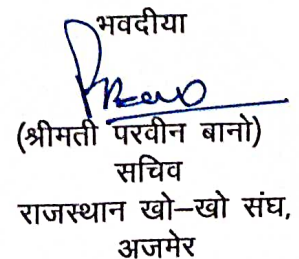 भवदीया
(श्रीमती परवीन बानो)
सचिव
राजस्थान खो–खो संघ,
अजमेर